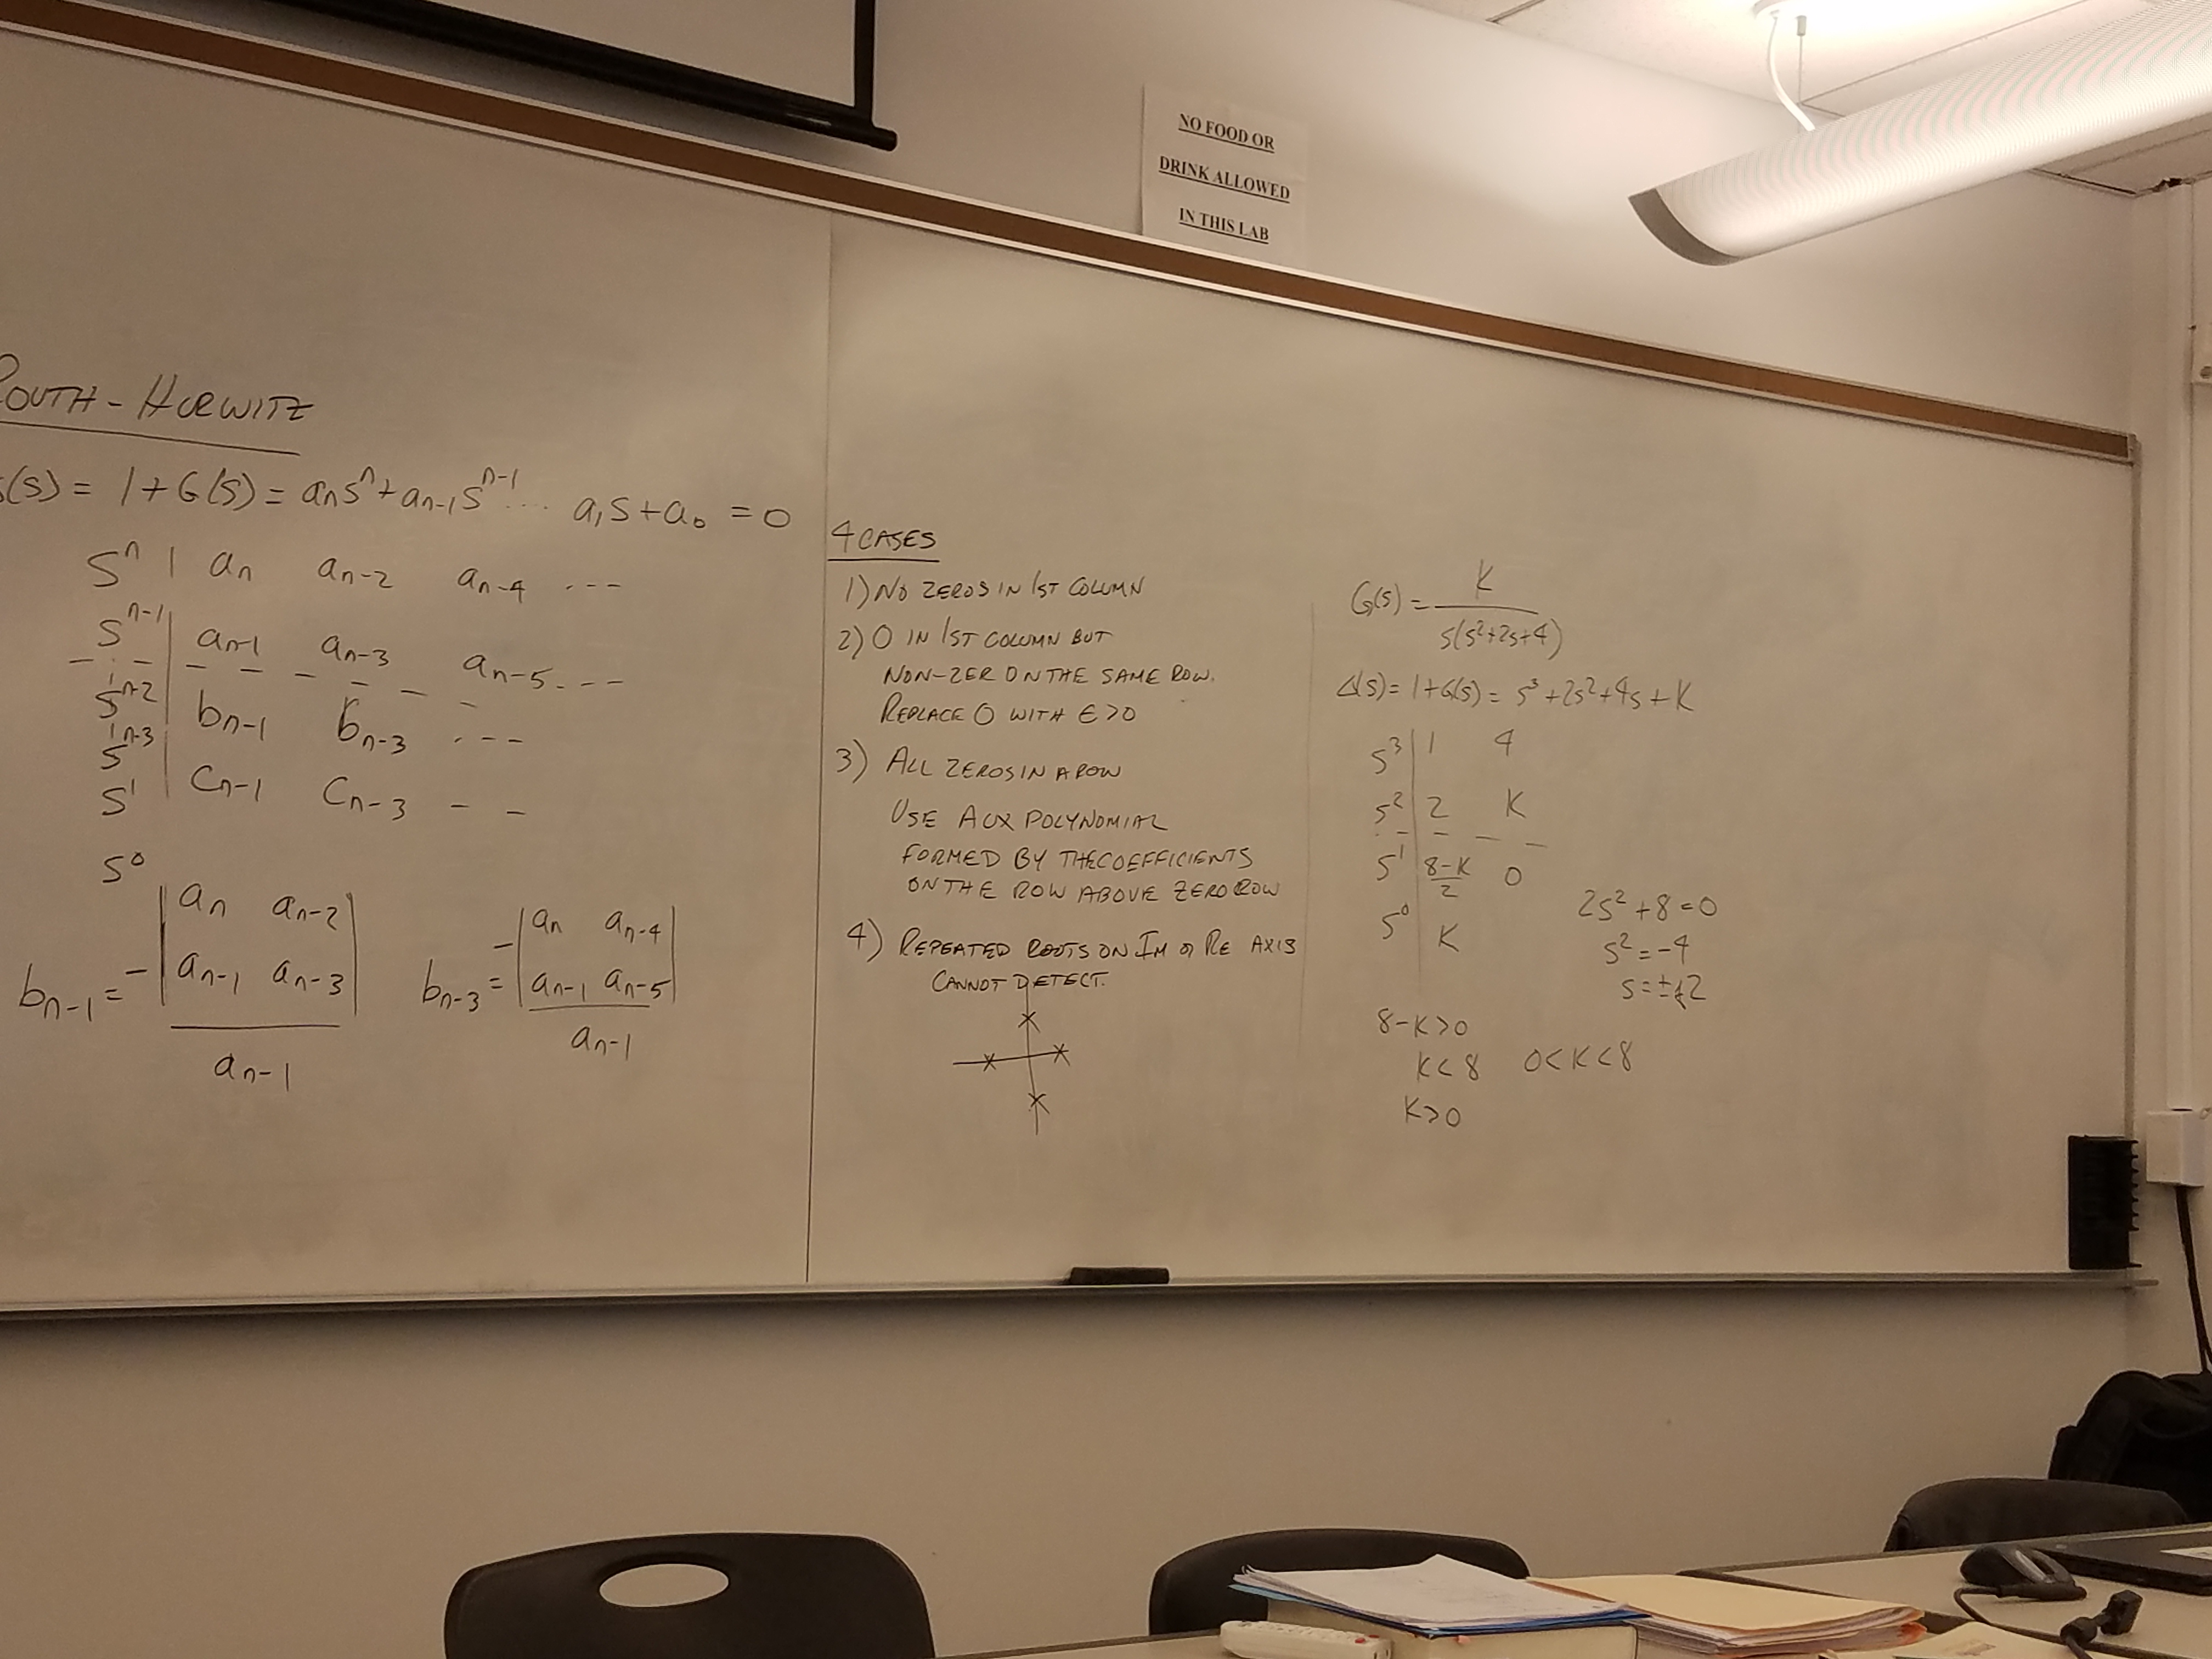 NO FOOD OR
DRINK ALLOWED
IN THIS LAB
ROUTH-HURWITZ
(S) = 1+G(S) = aₙsⁿ + aₙ₋₁sⁿ⁻¹ .... a₁s + a₀ = 0
sⁿ | aₙ aₙ₋₂ aₙ₋₄ ---
sⁿ⁻¹ | aₙ₋₁ aₙ₋₃ aₙ₋₅ ---
sⁿ⁻² | bₙ₋₁ bₙ₋₃ ---
sⁿ⁻³ | cₙ₋₁ cₙ₋₃ - -
s¹
s⁰
bₙ₋₁ = -|aₙ aₙ₋₂; aₙ₋₁ aₙ₋₃| / aₙ₋₁
bₙ₋₃ = -|aₙ aₙ₋₄; aₙ₋₁ aₙ₋₅| / aₙ₋₁
4 CASES
1) NO ZEROS IN 1ST COLUMN
2) 0 IN 1ST COLUMN BUT
NON-ZER ON THE SAME ROW.
REPLACE 0 WITH ε>0
3) ALL ZEROS IN A ROW
USE AUX POLYNOMIAL
FORMED BY THE COEFFICIENTS
ON THE ROW ABOVE ZERO ROW
4) REPEATED ROOTS ON IM or RE AXIS
CANNOT DETECT.
G(s) = K / s(s²+2s+4)
Δ(s) = 1+G(s) = s³+2s²+4s+K
s³ | 1 4
s² | 2 K
s¹ | (8-K)/2 0
s⁰ | K
2s²+8=0
s²=-4
s=±j2
8-K>0
K<8 0<K<8
K>0